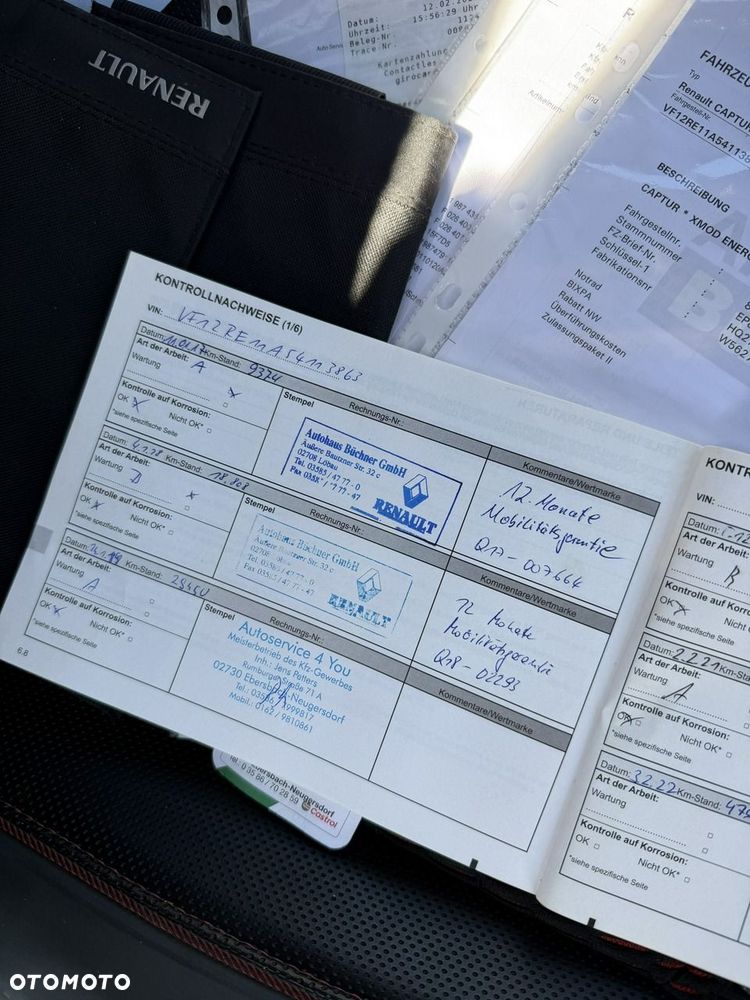 RENAULT
12.02.
Datum:
15:56:29 Uhr
Uhrzeit:
Beleg-Nr.
Trace-Nr.
Kartenzahlung
Contactless
girocar
Artikelnum
FAHRZEU
Typ
Renault CAPTUR
Fahrgestell-Nr.
VF12RE11A5411386
BESCHREIBUNG
CAPTUR * XMOD ENERG
Fahrgestellnr.
Stammnummer
FZ-Brief-Nr.
Schlüssel-1
Fabrikationsnr
Notrad
BIXPA
Rabatt NW
Überführungskosten
Zulassungspaket II
KONTROLLNACHWEISE (1/6)
VIN: VF12RE11A54113863
Datum: Km-Stand: 9374
Art der Arbeit: A
Wartung
Kontrolle auf Korrosion:
OK Nicht OK*
*siehe spezifische Seite
Stempel
Rechnungs-Nr.:
Autohaus Büchner GmbH
Äußere Bautzner Str. 32 c
02708 Löbau
Tel. 03585/47 77-0
RENAULT
Kommentare/Wertmarke
12 Monate
Mobilitätsgarantie
Q17 007664
Datum: 4.1.18 Km-Stand: 18.808
Art der Arbeit:
Wartung
Kontrolle auf Korrosion:
OK Nicht OK*
*siehe spezifische Seite
Stempel
Rechnungs-Nr.:
Autohaus Büchner GmbH
Äußere Bautzner Str. 32 c
Tel. 03585/47 77-0
Fax 03585/47 77-47
RENAULT
Kommentare/Wertmarke
12 Monate
Mobilitätsgarantie
Q18-02293
Datum: Km-Stand:
Art der Arbeit:
Wartung A
Kontrolle auf Korrosion:
OK Nicht OK*
*siehe spezifische Seite
Stempel
Rechnungs-Nr.:
Autoservice 4 You
Meisterbetrieb des Kfz-Gewerbes
Inh.: Jens Petters
Rumburger Straße 71 A
02730 Ebersbach-Neugersdorf
Mobil.: 0162 / 9810861
Kommentare/Wertmarke
6.8
KONTR
VIN:
Datum:
Art der Arbeit:
Wartung B
Kontrolle auf Korrosion:
OK
*siehe spezifische Seite
Datum: 2.2.21 Km-Stand:
Art der Arbeit:
Wartung A
Kontrolle auf Korrosion:
OK Nicht OK*
*siehe spezifische Seite
Datum: 3.2.22 Km-Stand:
Art der Arbeit:
Wartung
Kontrolle auf Korrosion:
OK Nicht OK*
*siehe spezifische Seite
ersbach-Neugersdorf
Tel.: 0 35 86 / 70 28 59
Castrol
OTOMOTO